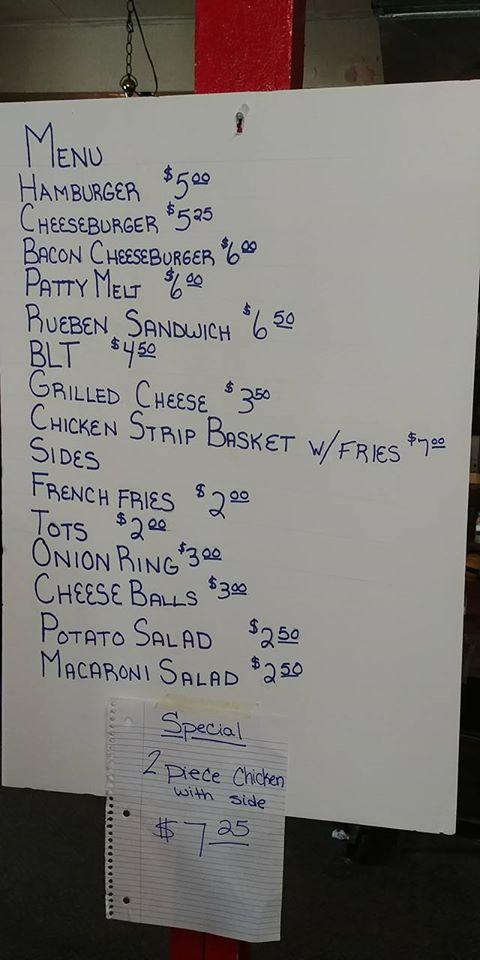 MENU
HAMBURGER $5.00
CHEESEBURGER $5.25
BACON CHEESEBURGER $6.00
PATTY MELT $6.00
RUEBEN SANDWICH $6.50
BLT $4.50
GRILLED CHEESE $3.50
CHICKEN STRIP BASKET W/FRIES $7.00
SIDES
FRENCH FRIES $2.00
TOTS $2.00
ONION RING $3.00
CHEESE BALLS $3.00
POTATO SALAD $2.50
MACARONI SALAD $2.50
Special
2 piece Chicken
with side
$7.25